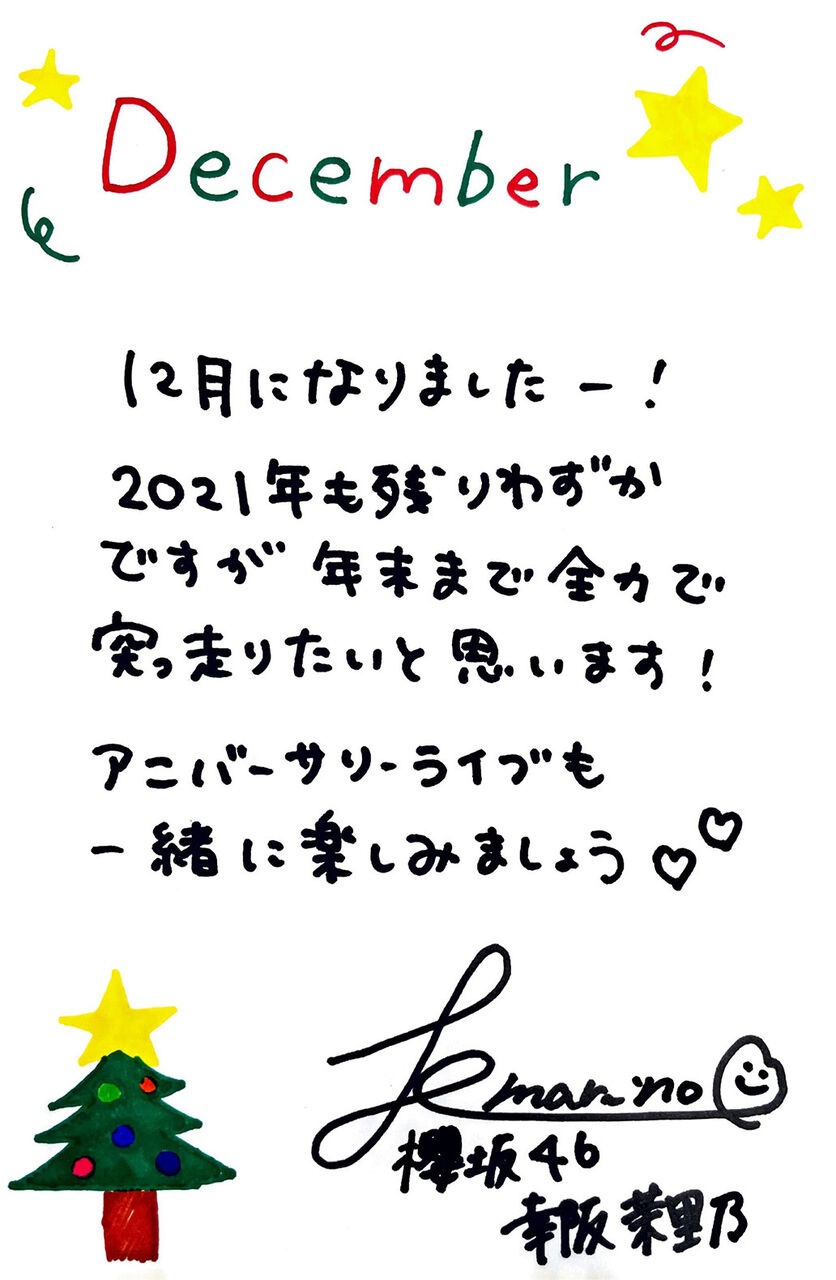 December
12月になりましたー！
2021年も残りわずか
ですが 年末まで全力で
突っ走りたいと思います！
アニバーサリーライブも
一緒に楽しみましょう♡♡
marino
櫻坂46
幸阪茉里乃